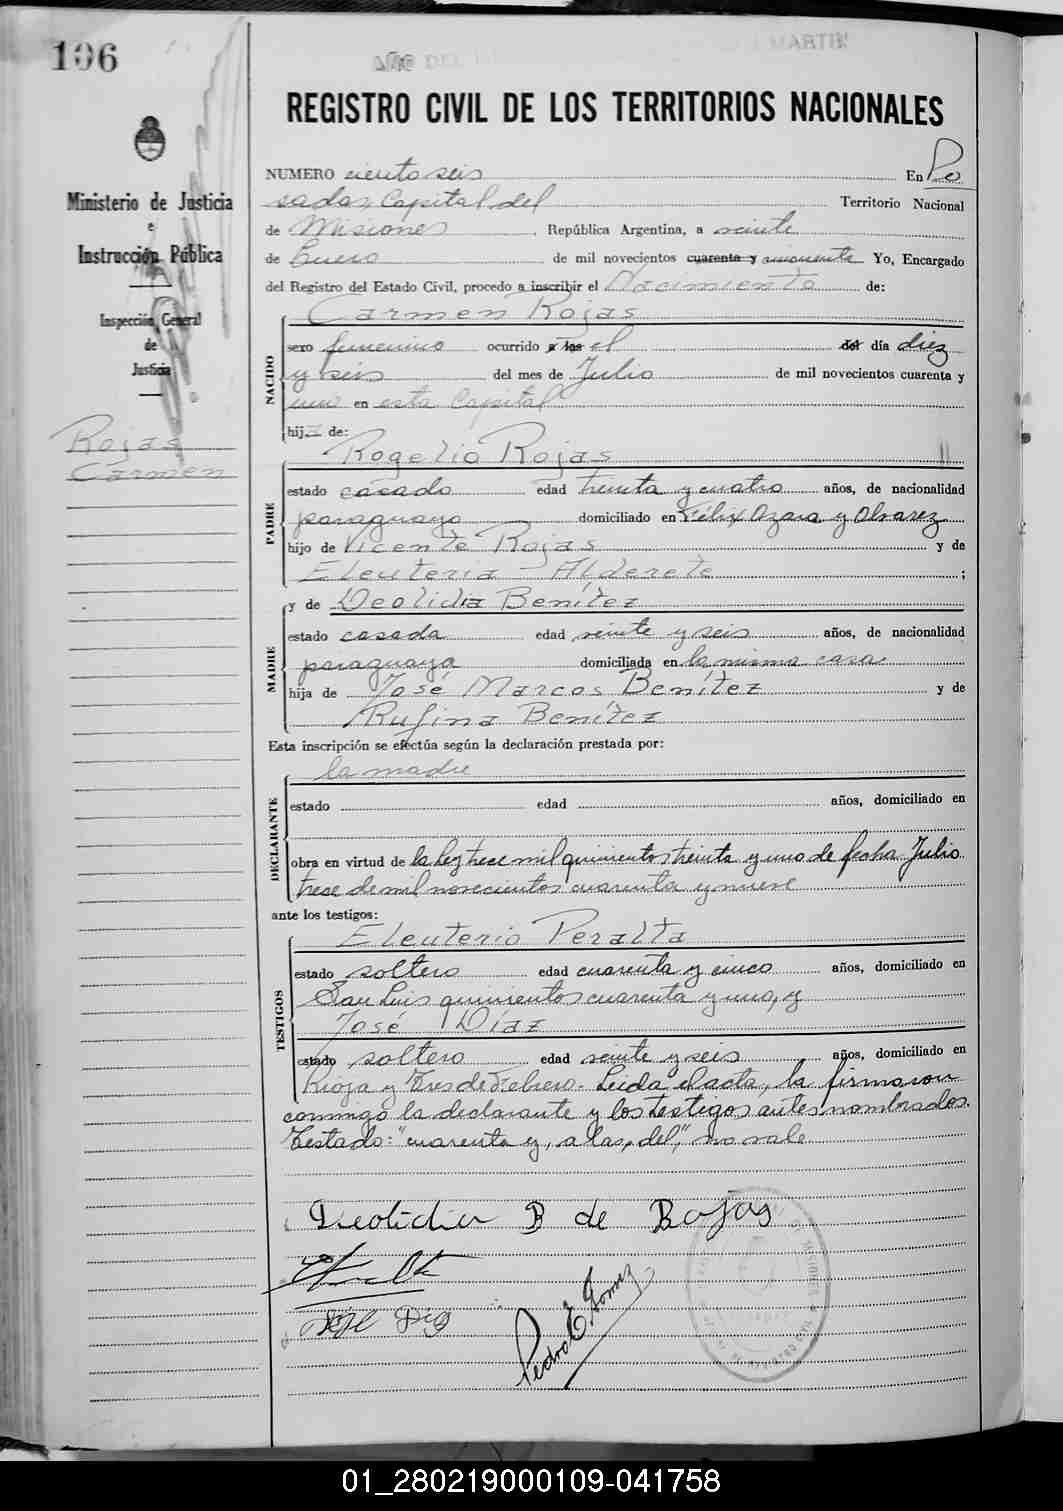 106
AÑO DEL
MARTIN
REGISTRO CIVIL DE LOS TERRITORIOS NACIONALES
Ministerio de Justicia
e
Instrucción Pública
Inspección General
de
Justicia
Rojas
Carmen
NUMERO ciento seis En Po
sadas, Capital del Territorio Nacional
de Misiones, República Argentina, a veinte
de Enero de mil novecientos cuarenta y cincuenta Yo, Encargado
del Registro del Estado Civil, procedo a inscribir el Nacimiento de:
NACIDO
Carmen Rojas
sexo femenino ocurrido a las el del día diez
y seis del mes de Julio de mil novecientos cuarenta y
uno en esta Capital
hija de:
PADRE
Rogelio Rojas
estado casado edad treinta y cuatro años, de nacionalidad
paraguayo domiciliado en Félix Azara y Alvarez
hijo de Vicente Rojas y de
Eleuteria Alderete ;
MADRE
y de Deolidia Benítez
estado casada edad veinte y seis años, de nacionalidad
paraguaya domiciliada en la misma casa
hija de José Marcos Benítez y de
Rufina Benítez
Esta inscripción se efectúa según la declaración prestada por:
DECLARANTE
la madre
estado edad años, domiciliado en
obra en virtud de la ley trece mil quinientos treinta y uno de fecha Julio
trece de mil novecientos cuarenta y nueve
ante los testigos:
TESTIGOS
Eleuterio Peralta
estado soltero edad cuarenta y cinco años, domiciliado en
San Luis quinientos cuarenta y uno, y
José Díaz
estado soltero edad veinte y seis años, domiciliado en
Rioja y Tres de Febrero. Leida el acta, la firmaron
conmigo la declarante y los testigos antes nombrados.
Testado: "cuarenta y, a las, del," no vale
Deolidia B de Rojas
Pedro E Gomez
01_280219000109-041758